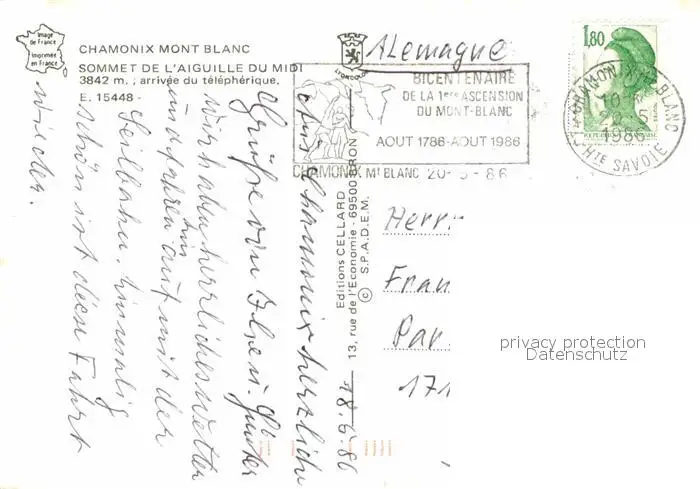 Image
de France
Imprimée
en France
CHAMONIX MONT BLANC
SOMMET DE L'AIGUILLE DU MIDI
3842 m. ; arrivée du téléphérique.
E. 15448 -
LYONDOLL
Alemagne
BICENTENAIRE
DE LA 1ère ASCENSION
DU MONT-BLANC
AOUT 1786-AOUT 1986
CHAMONIX Mt BLANC 20-5-86
1,80
CHAMONIX-MT-BLANC
10 H
20-5
1986
HTE SAVOIE
Editions CELLARD
13, rue de l'Economie - 69500 BRON
© S.P.A.D.E.M.
18.5.86
Aus Chamonix herzliche
Grüße von Ilse u. Günter
Wir haben herrliches Wetter
und fahren hin auf mit der
Seilbahn. Einmalig
schön ist diese Fahrt
wieder.
Herr-
Fran
Par
171
privacy protection
Datenschutz